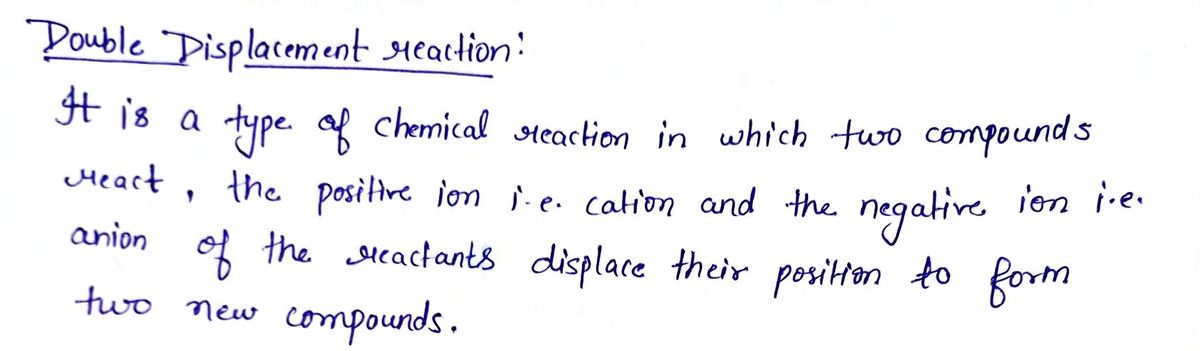 Double Displacement reaction:
It is a type of chemical reaction in which two compounds
react, the positive ion i.e. cation and the negative ion i.e.
anion of the reactants displace their position to form
two new compounds.